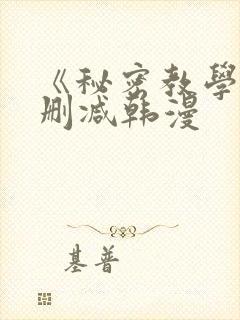 《秘密教學
删减韩漫
基普